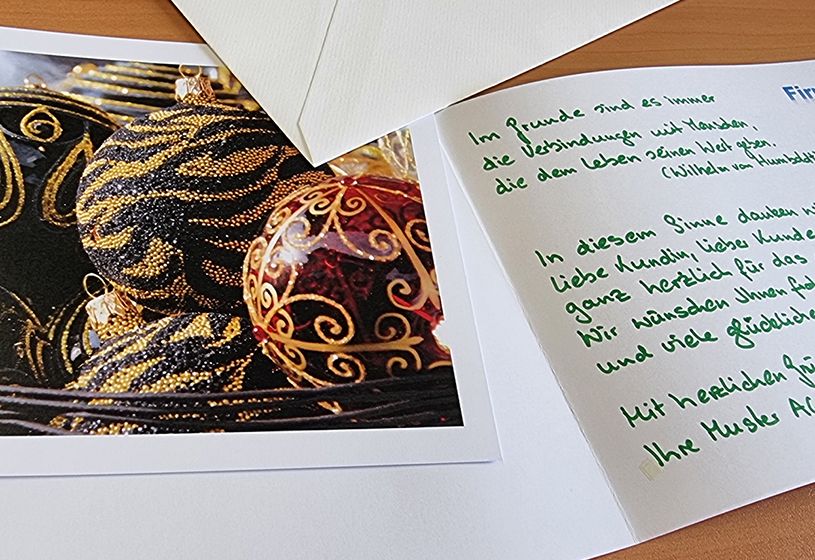 Firm
Im Grunde sind es immer
die Verbindungen mit Menschen,
die dem Leben seinen Wert geben.
(Wilhelm von Humboldt)
In diesem Sinne danken wi
liebe Kundin, lieber Kunde
ganz herzlich für das
Wir wünschen Ihnen
und viele glückliche
Mit herzlichen Grü
Ihre Muster AG